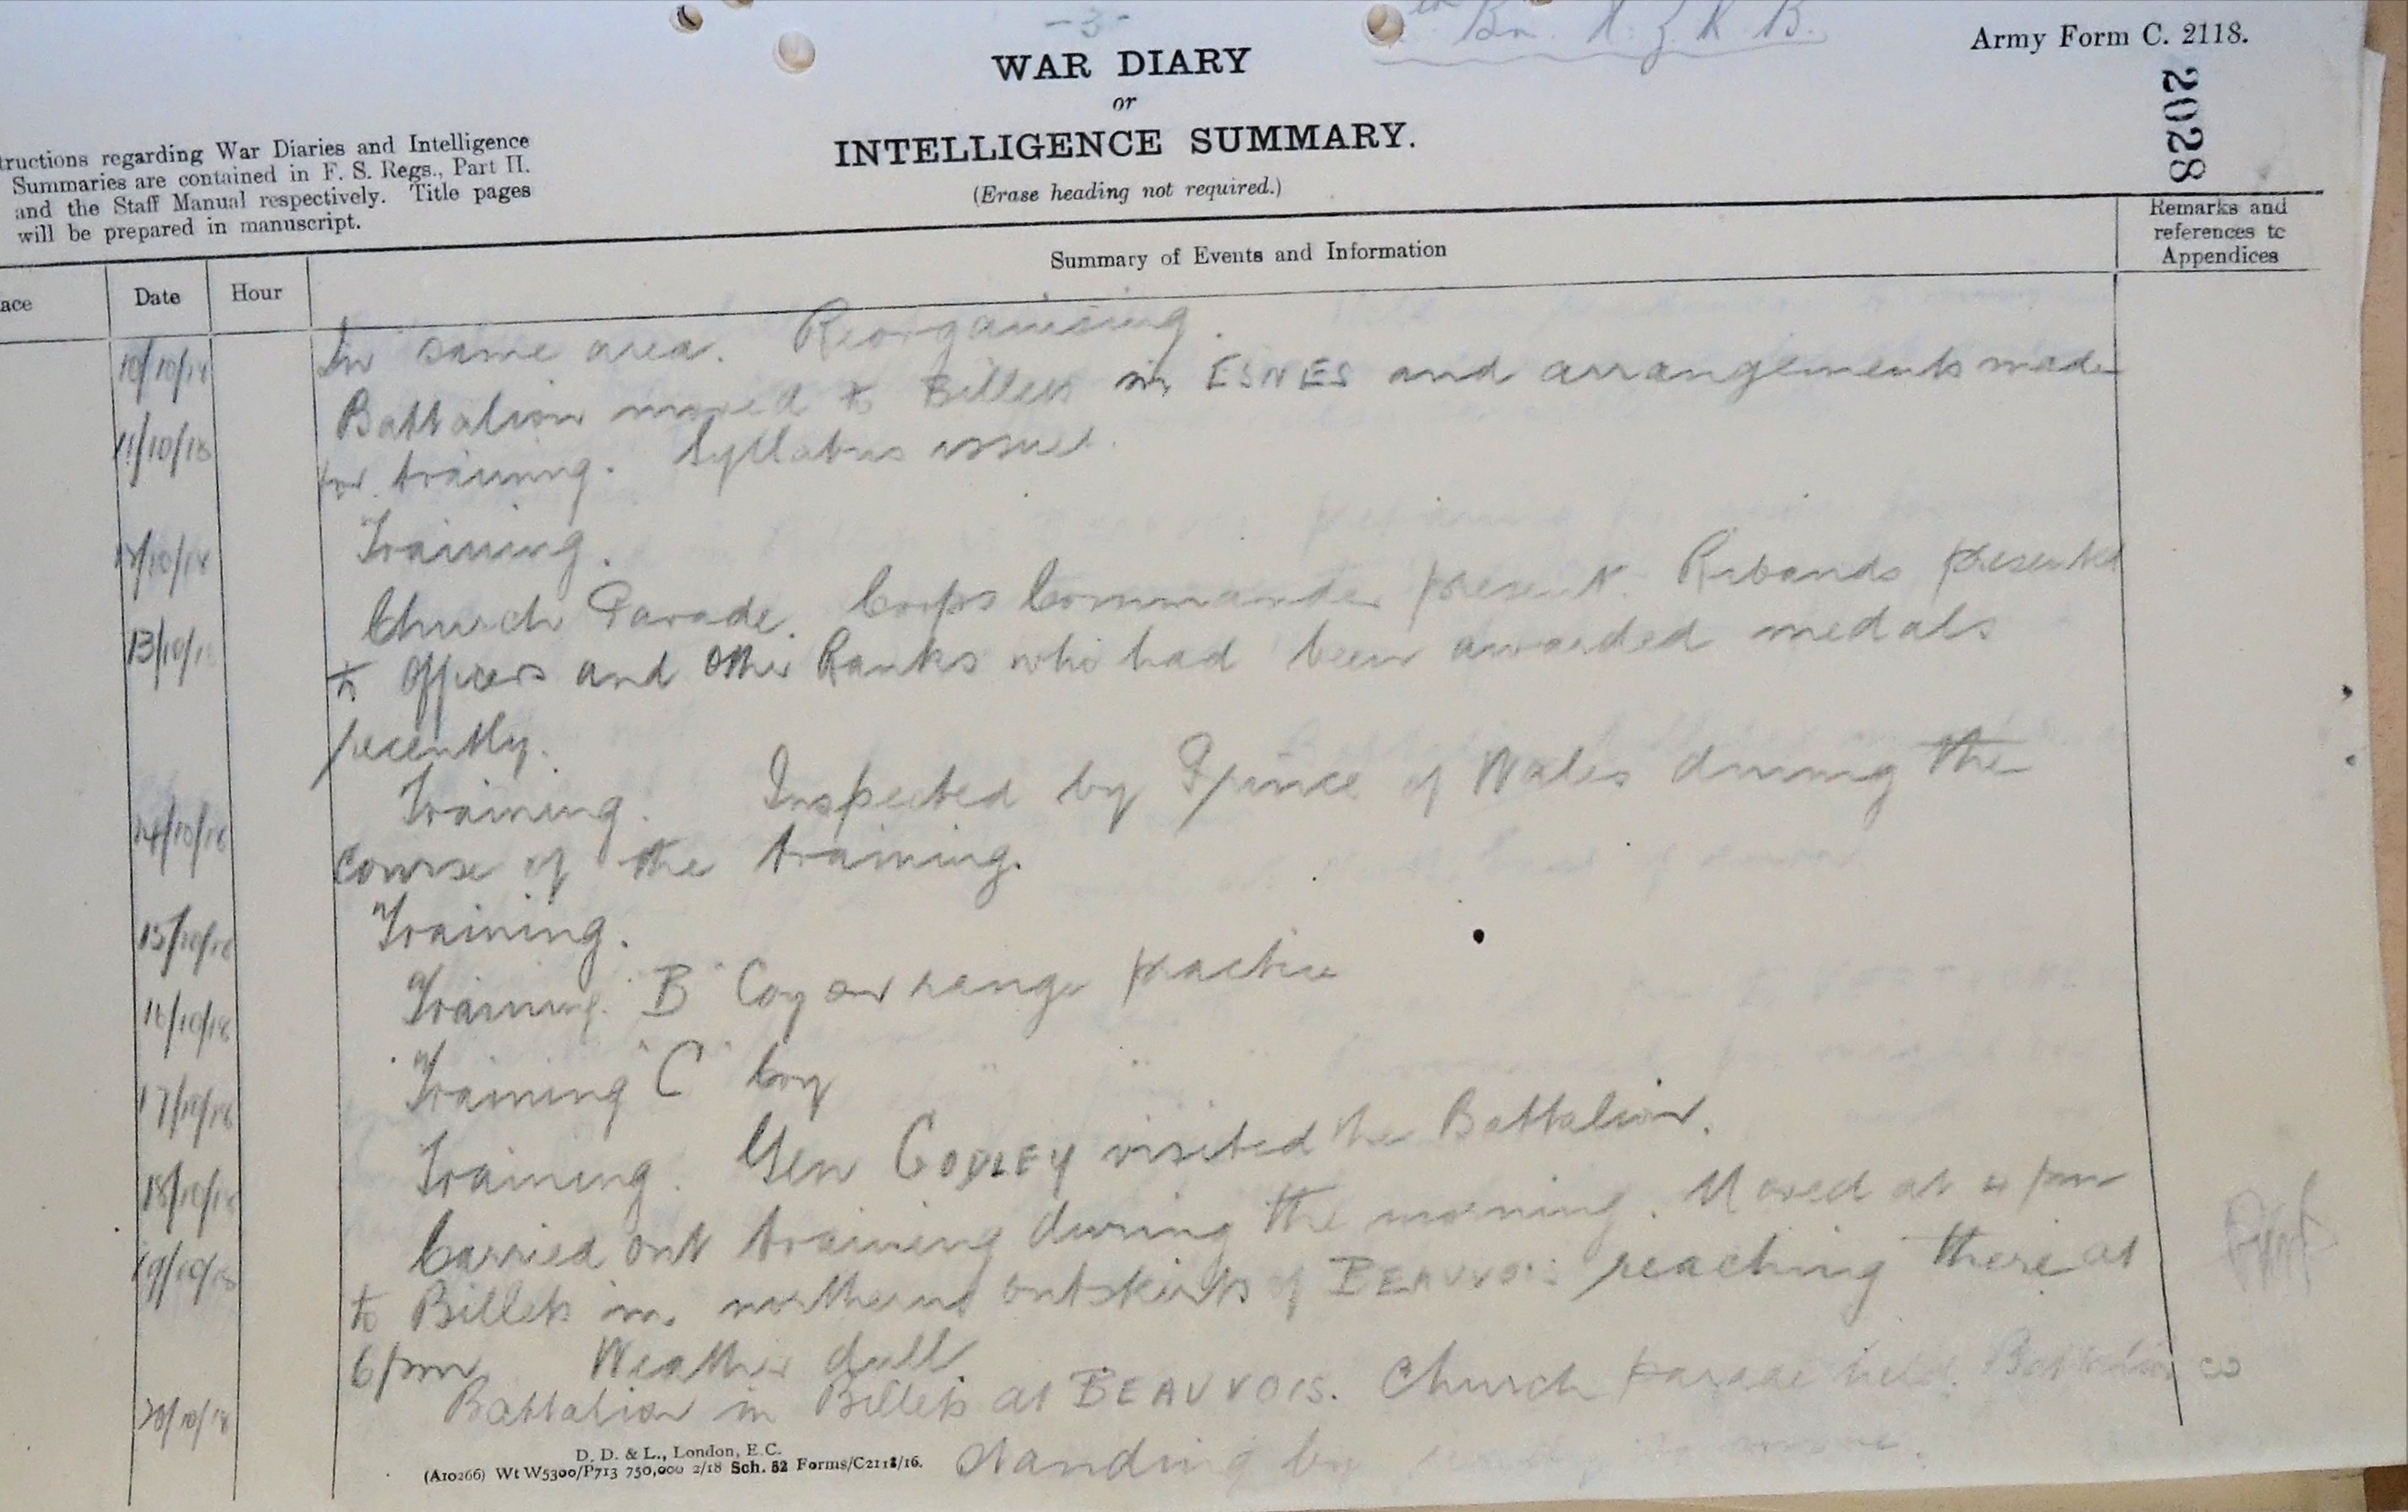 - 3 -
Bn. N. Z. R. B.
Army Form C. 2118.
2028
WAR DIARY
or
INTELLIGENCE SUMMARY.
(Erase heading not required.)
tructions regarding War Diaries and Intelligence
Summaries are contained in F. S. Regs., Part II.
and the Staff Manual respectively. Title pages
will be prepared in manuscript.
ace
Date
Hour
Summary of Events and Information
Remarks and
references to
Appendices
10/10/18 In same area. Reorganising.
11/10/18 Battalion moved to Billets in ESNES and arrangements made
for training. Syllabus issued.
12/10/18 Training.
13/10/1 Church Parade. Corps Commander present. Ribands presented
to Officers and Other Ranks who had been awarded medals
recently.
14/10/18 Training. Inspected by Prince of Wales during the
course of the training.
15/10/18 Training.
16/10/18 Training. "B" Coy on range practice
17/10/18 Training "C" Coy " " "
18/10/18 Training. Gen GODLEY visited the Battalion.
19/10/18 Carried out training during the morning. Moved at 4 pm
to Billets in northern outskirts of BEAUVOIS reaching there at
6 pm Weather dull
20/10/18 Battalion in Billets at BEAUVOIS. Church parade held. Battalion
standing by ready to move.
D. D. & L., London, E.C.
(A10266) Wt W5300/P713 750,000 2/18 Sch. 52 Forms/C2118/16.